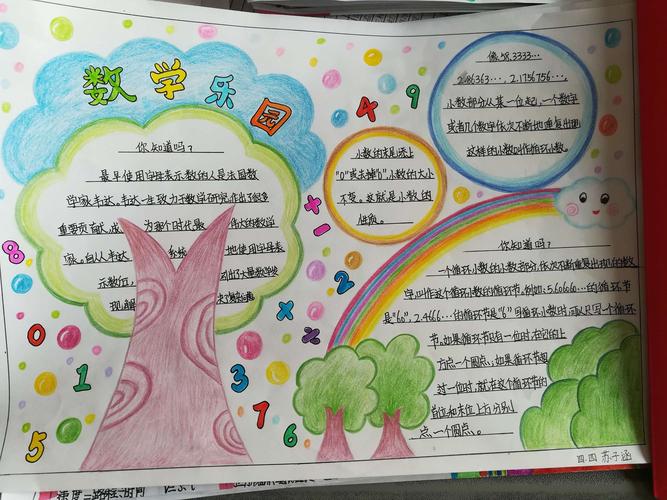 数学乐园
你知道吗？
最早使用字母表示数的人是法国数
学家韦达。韦达一生致力于数学研究，作出了很多
重要贡献，成 为那个时代最 伟大的数学
家。自从韦达 系统 地使用字母表
示数后， 引出了大量数学发
现，解
小数的末尾添上
"0"或去掉"0"，小数的大小
不变。这就是小数的
性质。
像58.3333…
2.86363…，2.1756756…，
小数部分从某一位起，一个数字
或者几个数字依次不断地重复出现，
这样的小数叫作循环小数。
你知道吗？
一个循环小数的小数部分，依次不断重复出现的数
字，叫作这个循环小数的循环节，例如：5.60606…的循环节
是"60"，2.4666…的循环节是"6"，写循环小数时，可以只写一个循环
节。如果循环节只有一位时，在它的上
方点一个圆点；如果循环节超
过一位时，就在这个循环节的
首位和末位上方分别
点一个圆点。
4 9
+ 1
8
2
× ×
0 1 3
5 7 6
四.四 苏子涵
速度=路程÷时间